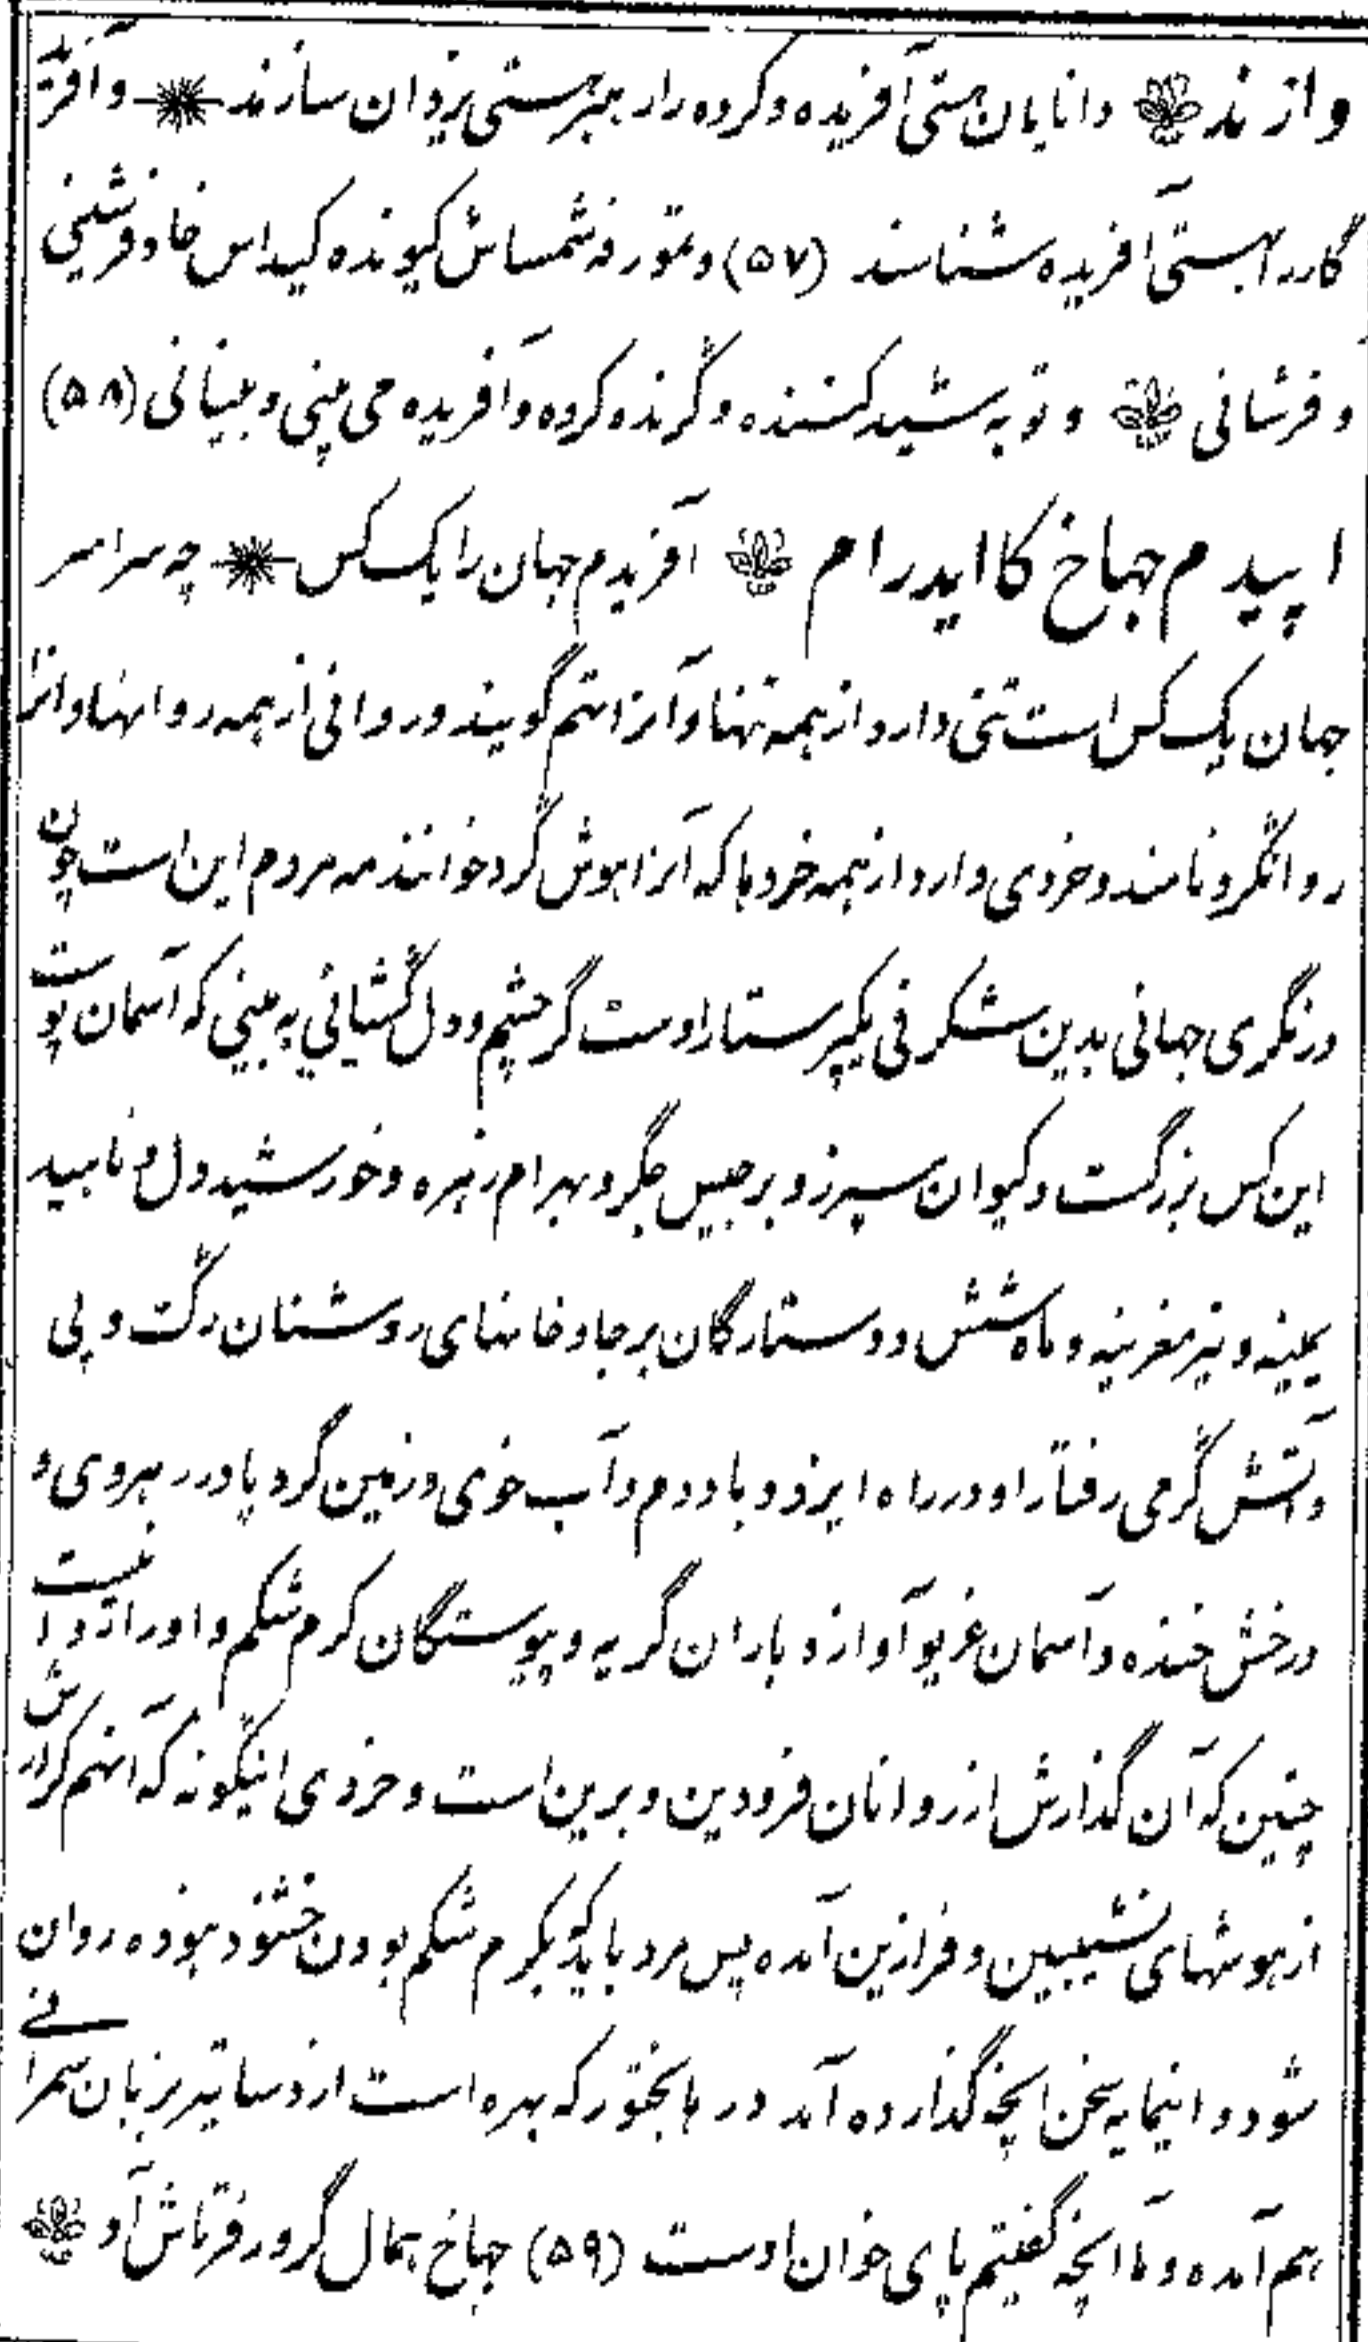 واژند دانایان هستی آفریده و کرده را رهبر هستی یزدان سازند و آفرید
گار را بهستی آفریده شناسند (۵۷) و تمور فه شمساش کیونده کیداس خاد فرشینی
و فرشانی و تو به شید کننده و گرنده کرده و آفریده می بینی و بینانی (۵۸)
اپیدم جهاخ کاایدرام آفریدم جهان را یک کس چه سراسر
جهان یک کس است تنی دارد از همه تنها و آنرا تنم گویند و روانی از همه روانها و انرا
روانگرد نامند و خردی دارد از همه خردها که آنرا هوش گرد خوانند مه مردم این است چون
درنگری جهانی بدین شگرفی یکپرستار اوست گر چشم و دل گشیانی به بینی که آسمان پوست
این کس بزرگست و کیوان سپرز و برجیس جگر و بهرام زهره و خورشید دل و ناهید
یمینه و تیر مغزینه و ماه شش و و ستارگان بر جا و خانهای روشنان رگ و پی
و آتش گرمی رفتار او در راه ایزد و باد دم و آب خوی و زمین گرد پا در رهروی و
درخش خنده و آسمان غریو آواز و باران گریه و پیوستگان کرم شکم و او را روانیست
چنین که آن گذارش از روانان فرودین و برین است و خردی اینگونه که آنهم گزارش
از هوشهای نشیبین و فرازین آمده پس مرد باید که بکرم شکم بودن خشنود نبوده روان
شود و اینمایه سخن انچه گذارده آمد در با بختور که بهره است از دساتیر بزبان سمرانی
هم آمده و ما آنچه گفتیم پای خوان اوست (۵۹) جهاخ همال گرور فرتاش آد